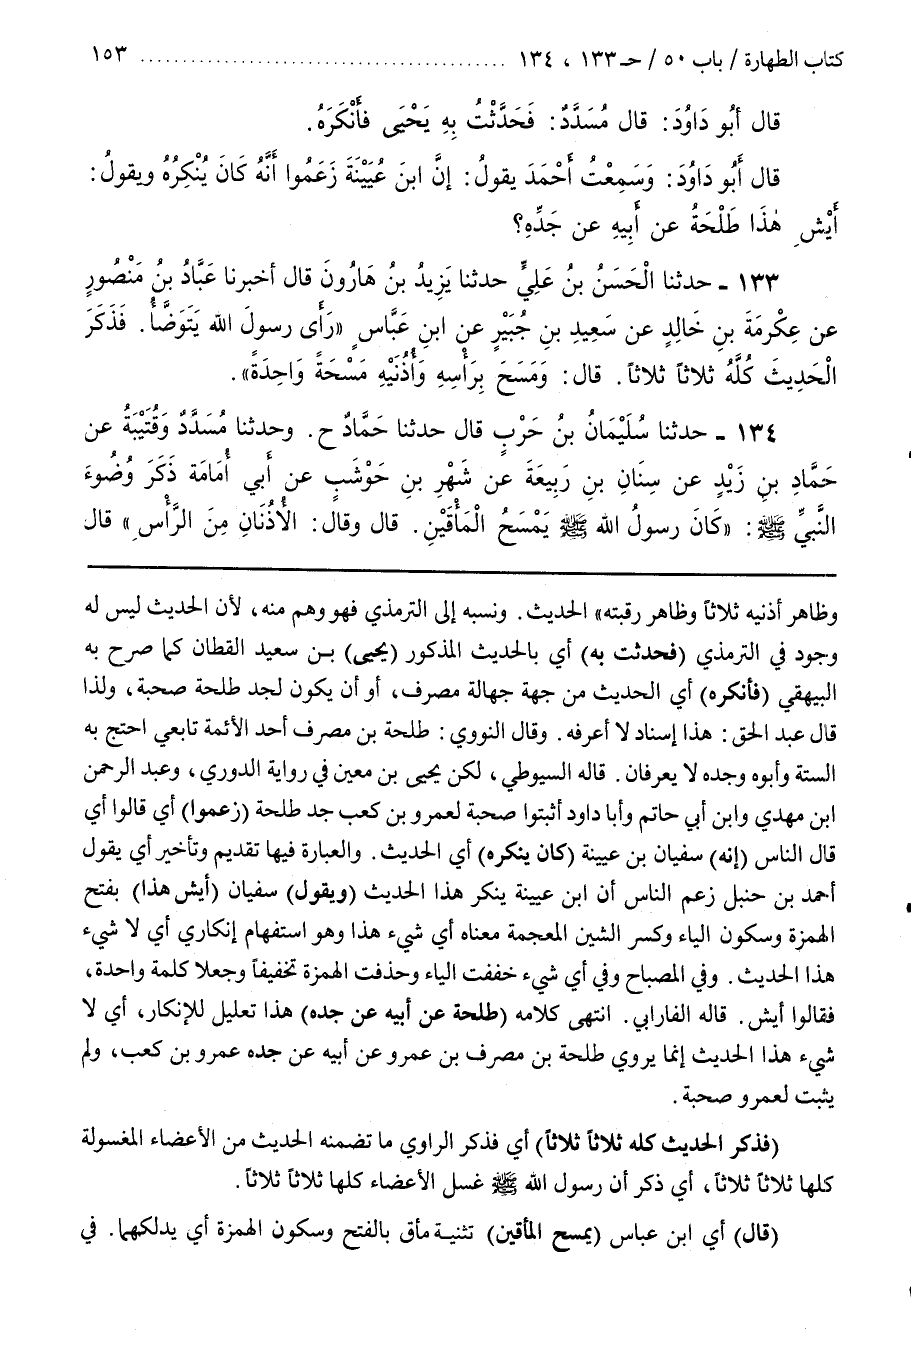 كتاب الطهارة / باب ٥٠ / حـ ١٣٣ ، ١٣٤ ............................................ ١٥٣
قال أبُو دَاوُدَ: قال مُسَدَّدٌ: فَحَدَّثْتُ بِهِ يَحْيَى فأَنْكَرَهُ.
قال أَبُو دَاوُدَ: وَسَمِعْتُ أَحْمَدَ يقولُ: إنَّ ابنَ عُيَيْنَةَ زَعَمُوا أَنَّهُ كَانَ يُنْكِرُهُ ويقولُ:
أَيْشٍ هٰذَا طَلْحَةُ عن أَبِيهِ عن جَدِّهِ؟
١٣٣ ـ حدثنا الْحَسَنُ بنُ عَلِيٍّ حدثنا يَزِيدُ بنُ هَارُونَ قال أخبرنا عَبَّادُ بنُ مَنْصُورٍ
عن عِكْرِمَةَ بنِ خَالِدٍ عن سَعِيدِ بنِ جُبَيْرٍ عن ابنِ عَبَّاسٍ «رَأَى رسولَ الله يَتَوَضَّأُ. فَذَكَرَ
الْحَدِيثَ كُلَّهُ ثلاثاً ثلاثاً. قال: وَمَسَحَ بِرَأْسِهِ وَأُذُنَيْهِ مَسْحَةً وَاحِدَةً».
١٣٤ ـ حدثنا سُلَيْمَانُ بنُ حَرْبٍ قال حدثنا حَمَّادٌ ح. وحدثنا مُسَدَّدٌ وَقُتَيْبَةُ عن
حَمَّادِ بنِ زَيْدٍ عن سِنَانِ بنِ رَبِيعَةَ عن شَهْرِ بنِ حَوْشَبٍ عن أَبي أُمَامَةَ ذَكَرَ وُضُوءَ
النَّبيِّ ﷺ: «كَانَ رسولُ الله ﷺ يَمْسَحُ الْمَأْقَيْنِ. قال وقال: الأُذُنَانِ مِنَ الرَّأْسِ» قال
وظاهر أذنيه ثلاثاً وظاهر رقبته» الحديث. ونسبه إلى الترمذي فهو وهم منه، لأن الحديث ليس له
وجود في الترمذي (فحدثت به) أي بالحديث المذكور (يحيى) بن سعيد القطان كما صرح به
البيهقي (فأنكره) أي الحديث من جهة جهالة مصرف، أو أن يكون لجد طلحة صحبة، ولذا
قال عبد الحق: هذا إسناد لا أعرفه. وقال النووي: طلحة بن مصرف أحد الأئمة تابعي احتج به
الستة وأبوه وجده لا يعرفان. قاله السيوطي، لكن يحيى بن معين في رواية الدوري، وعبد الرحمن
ابن مهدي وابن أبي حاتم وأبا داود أثبتوا صحبة لعمرو بن كعب جد طلحة (زعموا) أي قالوا أي
قال الناس (إنه) سفيان بن عيينة (كان ينكره) أي الحديث. والعبارة فيها تقديم وتأخير أي يقول
أحمد بن حنبل زعم الناس أن ابن عيينة ينكر هذا الحديث (ويقول) سفيان (أيش هذا) بفتح
الهمزة وسكون الياء وكسر الشين المعجمة معناه أي شيء هذا وهو استفهام إنكاري أي لا شيء
هذا الحديث. وفي المصباح وفي أي شيء خففت الياء وحذفت الهمزة تخفيفاً وجعلا كلمة واحدة،
فقالوا أيش. قاله الفارابي. انتهى كلامه (طلحة عن أبيه عن جده) هذا تعليل للإنكار، أي لا
شيء هذا الحديث إنما يروي طلحة بن مصرف بن عمرو عن أبيه عن جده عمرو بن كعب، ولم
يثبت لعمرو صحبة.
(فذكر الحديث كله ثلاثاً ثلاثاً) أي فذكر الراوي ما تضمنه الحديث من الأعضاء المغسولة
كلها ثلاثاً ثلاثاً، أي ذكر أن رسول الله ﷺ غسل الأعضاء كلها ثلاثاً ثلاثاً.
(قال) أي ابن عباس (يمسح المأقين) تثنية مأق بالفتح وسكون الهمزة أي يدلكهما. في